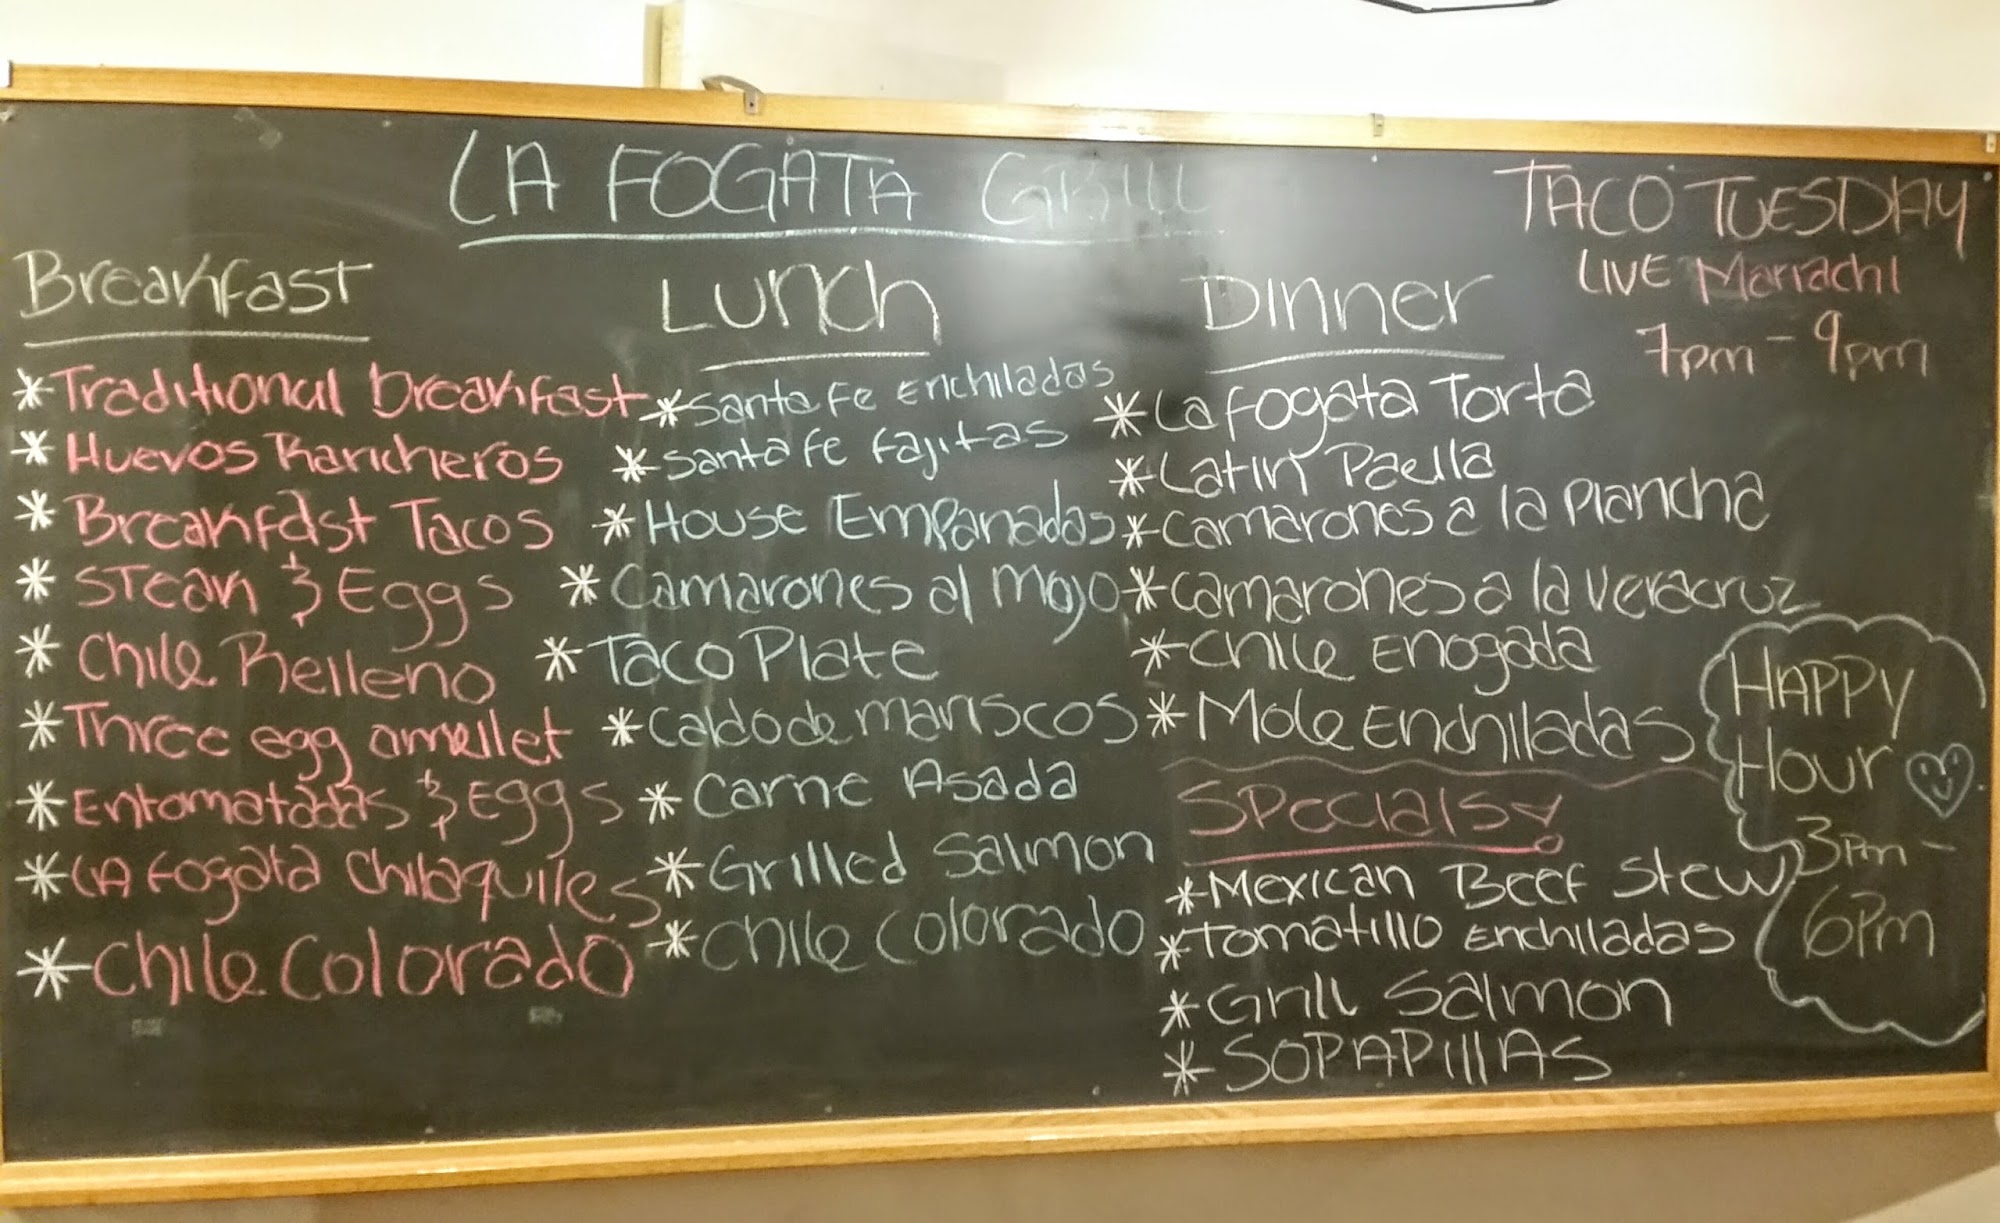 LA FOGATA GRILL
TACO TUESDAY
LIVE Marrachi
7pm - 9pm
Breakfast
* Traditional breakfast
* Huevos Rancheros
* Breakfast Tacos
* Steak & Eggs
* Chile Relleno
* Three egg omellet
* Entomatadas & Eggs
* LA Fogata Chilaquiles
* Chile Colorado
Lunch
* Santa Fe Enchiladas
* Santa Fe Fajitas
* House Empanadas
* Camarones al mojo
* Taco Plate
* Caldo de mariscos
* Carne Asada
* Grilled Salmon
* Chile Colorado
Dinner
* La fogata Torta
* Latin Paella
* Camarones a la Plancha
* Camarones a la veracruz
* Chile Enogada
* Mole Enchiladas
Specials!
* Mexican Beef Stew
* Tomatillo Enchiladas
* Grill Salmon
* SOPAPILLAS
HAPPY
Hour
3pm -
6pm